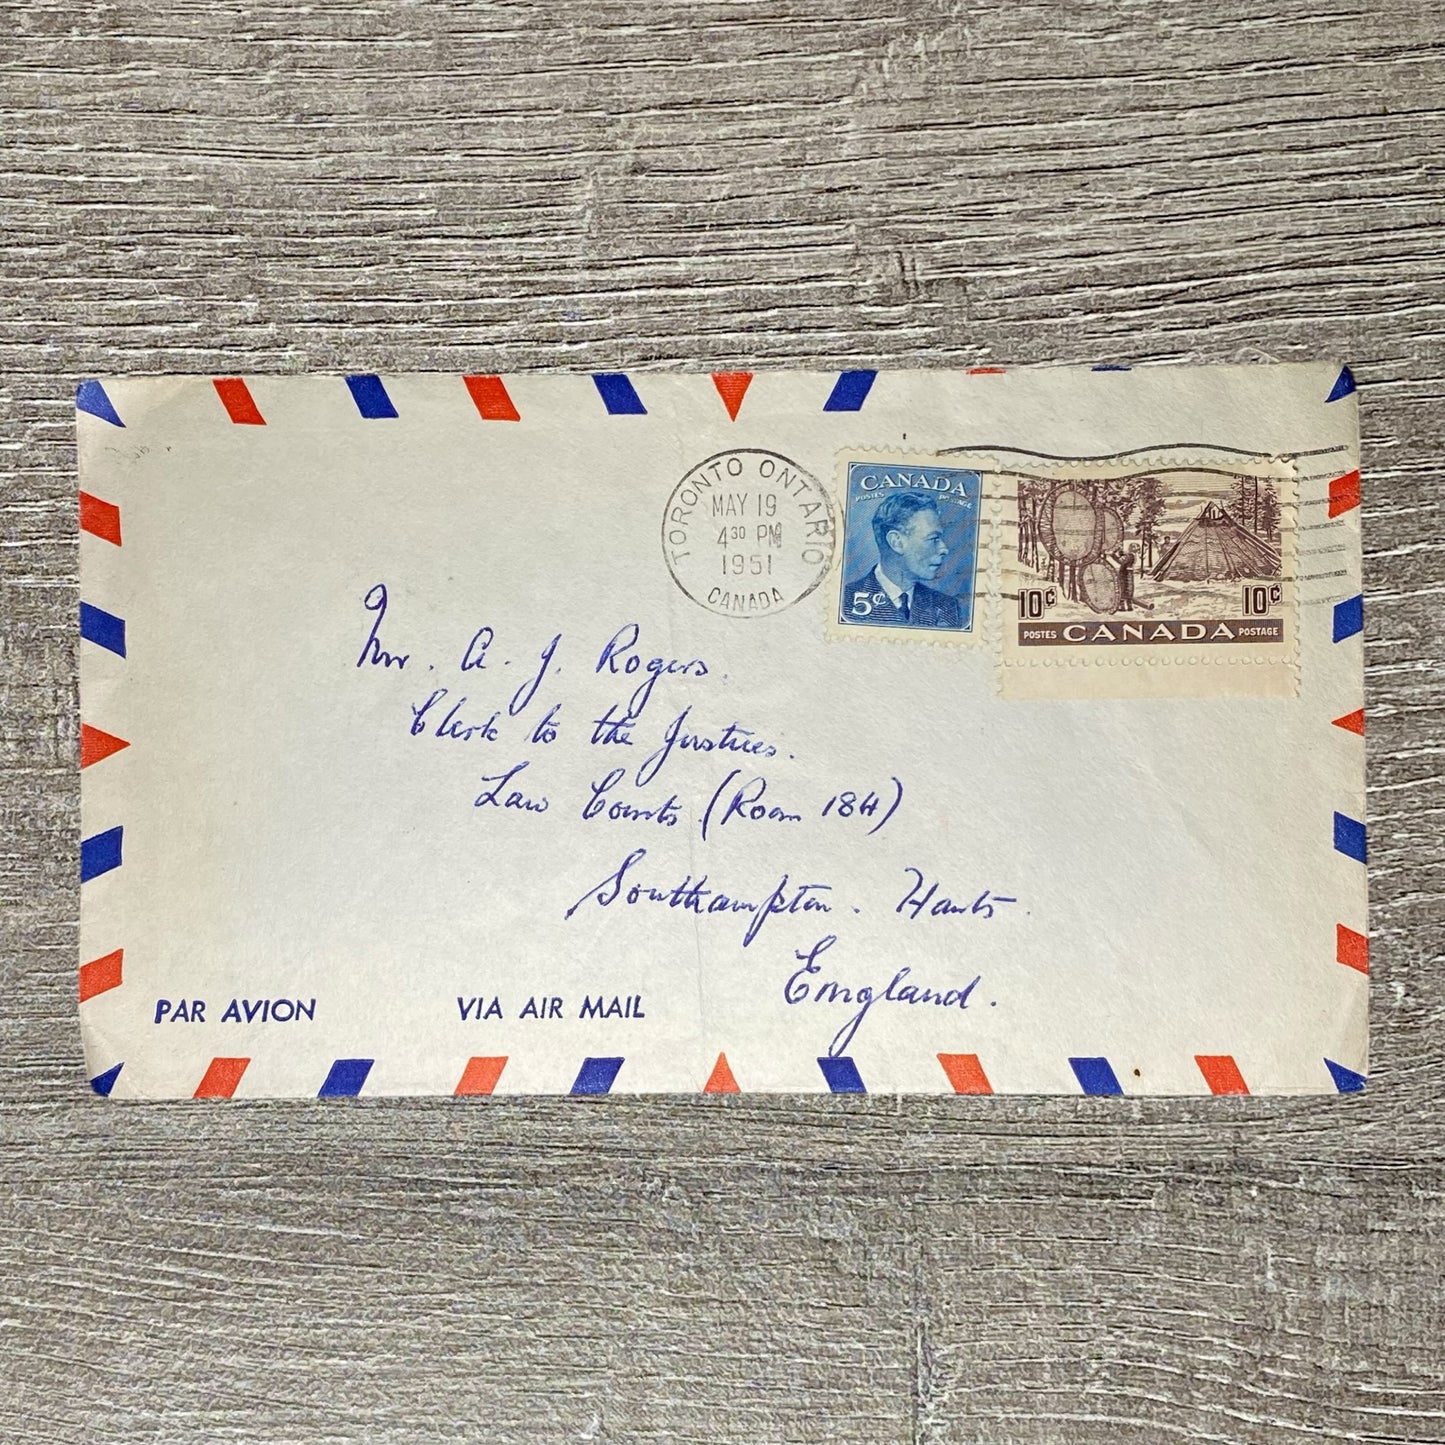 TORONTO ONTARIO
MAY 19
4 30 PM
1951
CANADA
CANADA
POSTES POSTAGE
5¢
10¢ 10¢
POSTES CANADA POSTAGE
Mr. A. J. Rogers.
Clerk to the Justices.
Law Courts (Room 184)
Southampton. Hants.
England.
PAR AVION VIA AIR MAIL